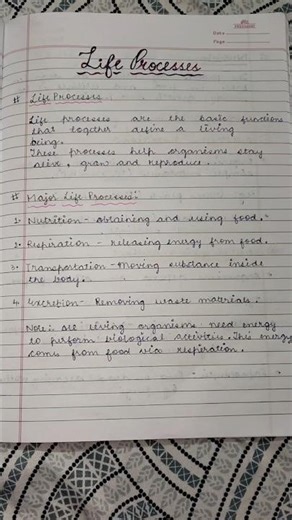 Date
Page
Life Processes
# Life Processes
Life processes are the basic functions
that together define a living
being.
These processes help organisms stay
alive, grow and reproduce.
# Major Life Processes:
1. Nutrition - obtaining and using food.
2. Respiration - releasing energy from food.
3. Transportation - Moving substance inside
the body.
4. Excretion - Removing waste materials.
Note: all living organisms need energy
to perform biological activities. This energy
comes from food via respiration.